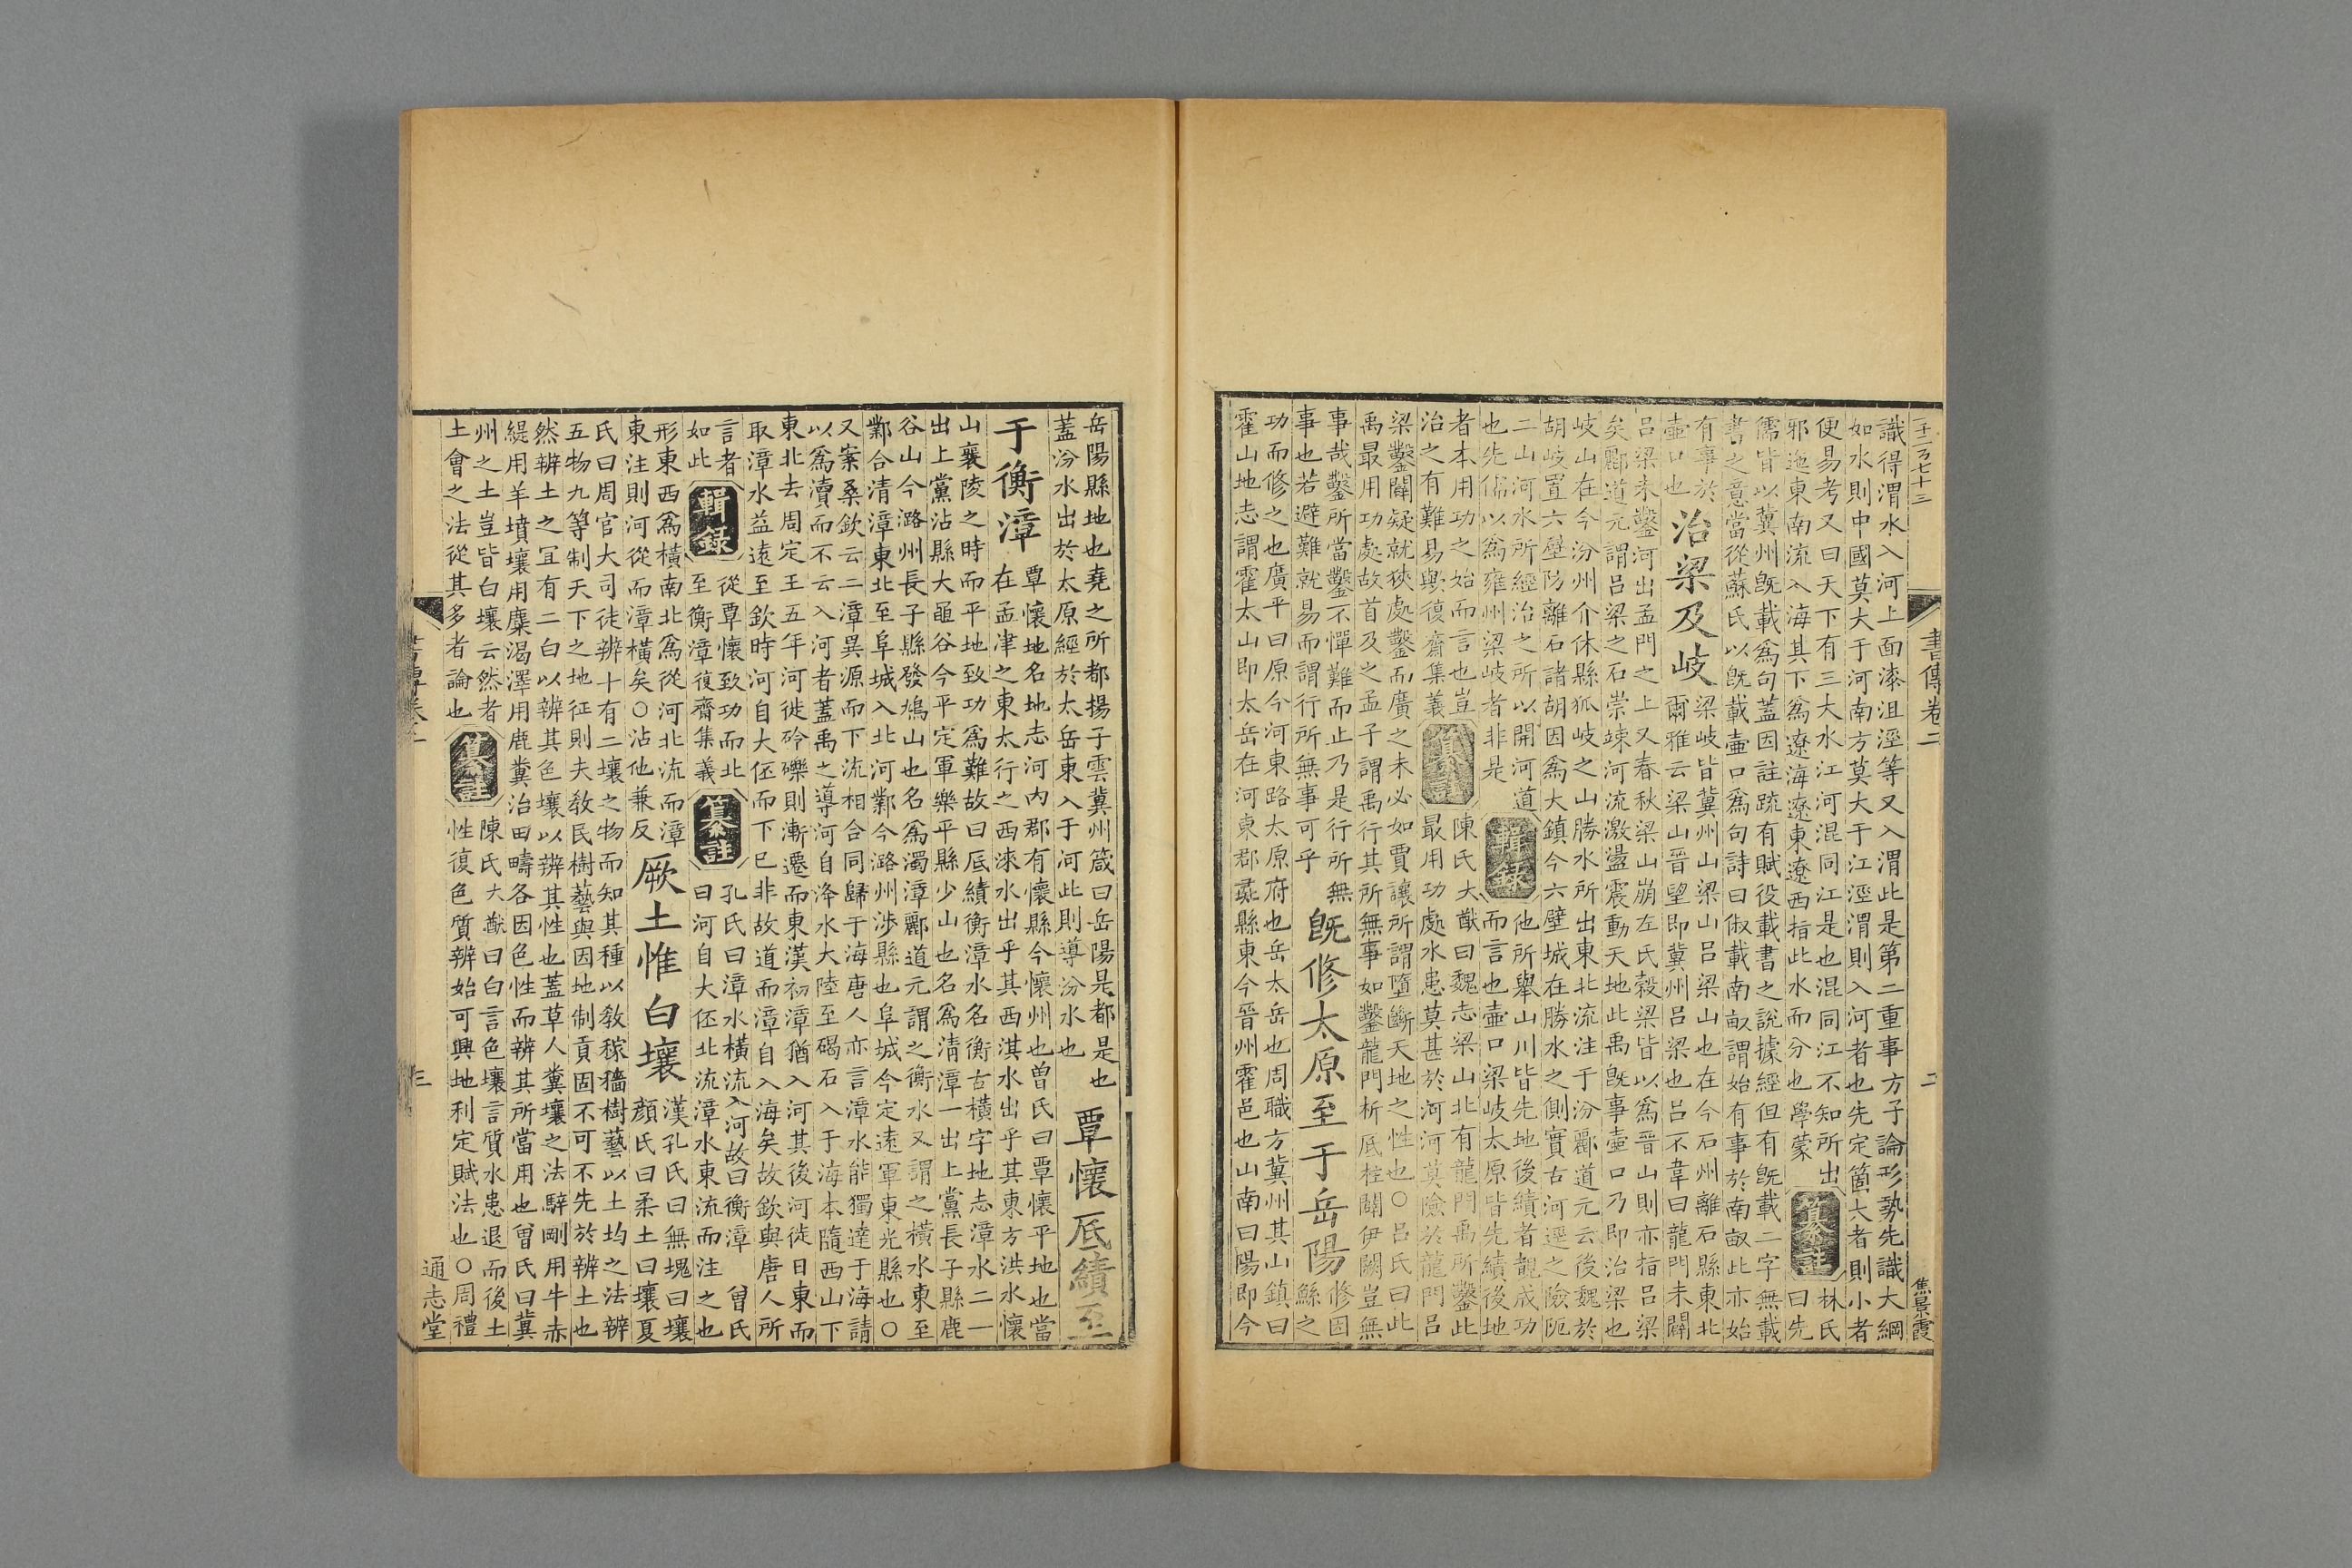 書傳卷二
二
焦景霞
識得渭水入河上面漆沮涇等又入渭此是第二重事方子論形勢先識大綱
如水則中國莫大于河南方莫大于江涇渭則入河者也先定箇大者則小者
便易考又曰天下有三大水江河混同江是也混同江不知所出
邪迤東南流入海其下爲遼海遼東遼西指此水而分也學蒙
纂註
林氏
曰先
儒皆以冀州旣載爲句蓋因註疏有賦役載書之說據經但有旣載二字無載
書之意當從蘇氏以旣載壷口爲句詩曰俶載南畝謂始有事於南畝此亦始
有事於
壷口也
治梁及岐
梁岐皆冀州山梁山呂梁山也在今石州離石縣東北
爾雅云梁山晉望即冀州呂梁也呂不韋曰龍門未闢
呂梁未鑿河出孟門之上又春秋梁山崩左氏穀梁皆以爲晉山則亦指呂梁
矣酈道元謂呂梁之石崇竦河流激盪震動天地此禹旣事壷口乃即治梁也
岐山在今汾州介休縣狐岐之山勝水所出東北流注于汾酈道元云後魏於
胡岐置六壁防離石諸胡因爲大鎮今六壁城在勝水之側實古河逕之險阨
二山河水所經治之所以開河道
也先儒以爲雍州梁岐者非是
輯錄
他所舉山川皆先地後績者覩成功
而言也壷口梁岐太原皆先績後地
者本用功之始而言也豈
治之有難易歟復齋集義
纂註
陳氏大猷曰魏志梁山北有龍門禹所鑿此
最用功處水患莫甚於河河莫險於龍門呂
梁鑿闢疑就狹處鑿而廣之未必如賈讓所謂墮斷天地之性也○呂氏曰此
禹最用功處故首及之孟子謂禹行其所無事如鑿龍門析厎柱闢伊闕豈無
事哉鑿所當鑿不憚難而止乃是行所無
事也若避難就易而謂行所無事可乎
旣修太原至于岳陽
修因
鯀之
功而修之也廣平曰原今河東路太原府也岳太岳也周職方冀州其山鎮曰
霍山地志謂霍太山即太岳在河東郡彘縣東今晉州霍邑也山南曰陽即今
岳陽縣地也堯之所都揚子雲冀州箴曰岳陽是都是也
蓋汾水出於太原經於太岳東入于河此則導汾水也
覃懷厎績至
于衡漳
覃懷地名地志河內郡有懷縣今懷州也曾氏曰覃懷平地也當
在孟津之東太行之西淶水出乎其西淇水出乎其東方洪水懷
山襄陵之時而平地致功爲難故曰厎績衡漳水名衡古橫字地志漳水二一
出上黨沾縣大黽谷今平定軍樂平縣少山也名爲清漳一出上黨長子縣鹿
谷山今潞州長子縣發鳩山也名爲濁漳酈道元謂之衡水又謂之橫水東至
鄴合清漳東北至阜城入北河鄴今潞州涉縣也阜城今定遠軍東光縣也○
又案桑欽云二漳異源而下流相合同歸于海唐人亦言漳水能獨達于海請
以爲瀆而不云入河者蓋禹之導河自洚水大陸至碣石入于海本隨西山下
東北去周定王五年河徙砱礫則漸遷而東漢初漳猶入河其後河徙日東而
取漳水益遠至欽時河自大伾而下已非故道而漳自入海矣故欽與唐人所
言者
如此
輯錄
從覃懷致功而北
至衡漳復齋集義
纂註
孔氏曰漳水橫流入河故曰衡漳 曾氏
曰河自大伾北流漳水東流而注之也
形東西爲橫南北爲從河北流而漳
東注則河從而漳橫矣○沾他兼反
厥土惟白壤
漢孔氏曰無塊曰壤
顔氏曰柔土曰壤夏
氏曰周官大司徒辨十有二壤之物而知其種以敎稼穡樹藝以土均之法辨
五物九等制天下之地征則夫敎民樹藝與因地制貢固不可不先於辨土也
然辨土之冝有二白以辨其色壤以辨其性也蓋草人糞壤之法騂剛用牛赤
緹用羊墳壤用麋渴澤用鹿糞治田疇各因色性而辨其所當用也曾氏曰冀
州之土豈皆白壤云然者
土會之法從其多者論也
纂註
陳氏大猷曰白言色壤言質水患退而後土
性復色質辨始可興地利定賦法也○周禮
三
通志堂